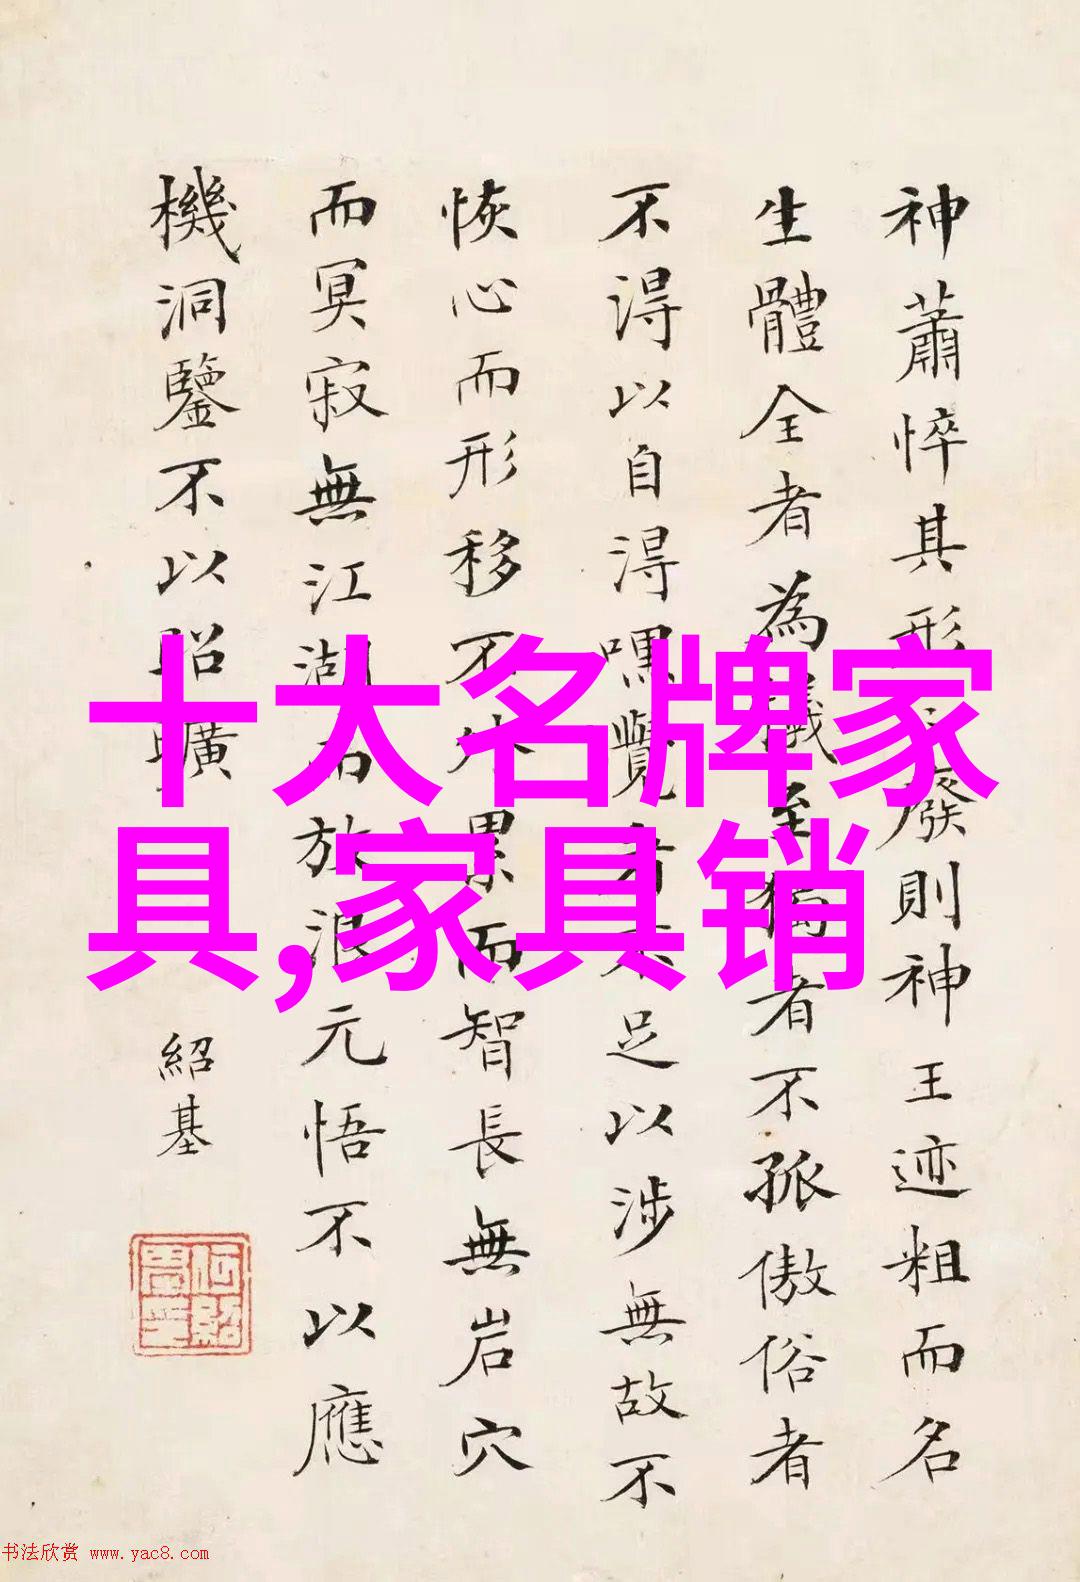 神蕭悴其形廢則神王迹粗而名
生體全者為儀至獨者不孤傲俗者
不得以自得嘿覺者不足以涉無故不
恢心而形移不外累而智長無岩穴
而冥寂無江湖而放浪元悟不以應
機洞鑒不以昭曠
紹基
十大名牌家
具,家具销
书法欣赏 www.yac8.com